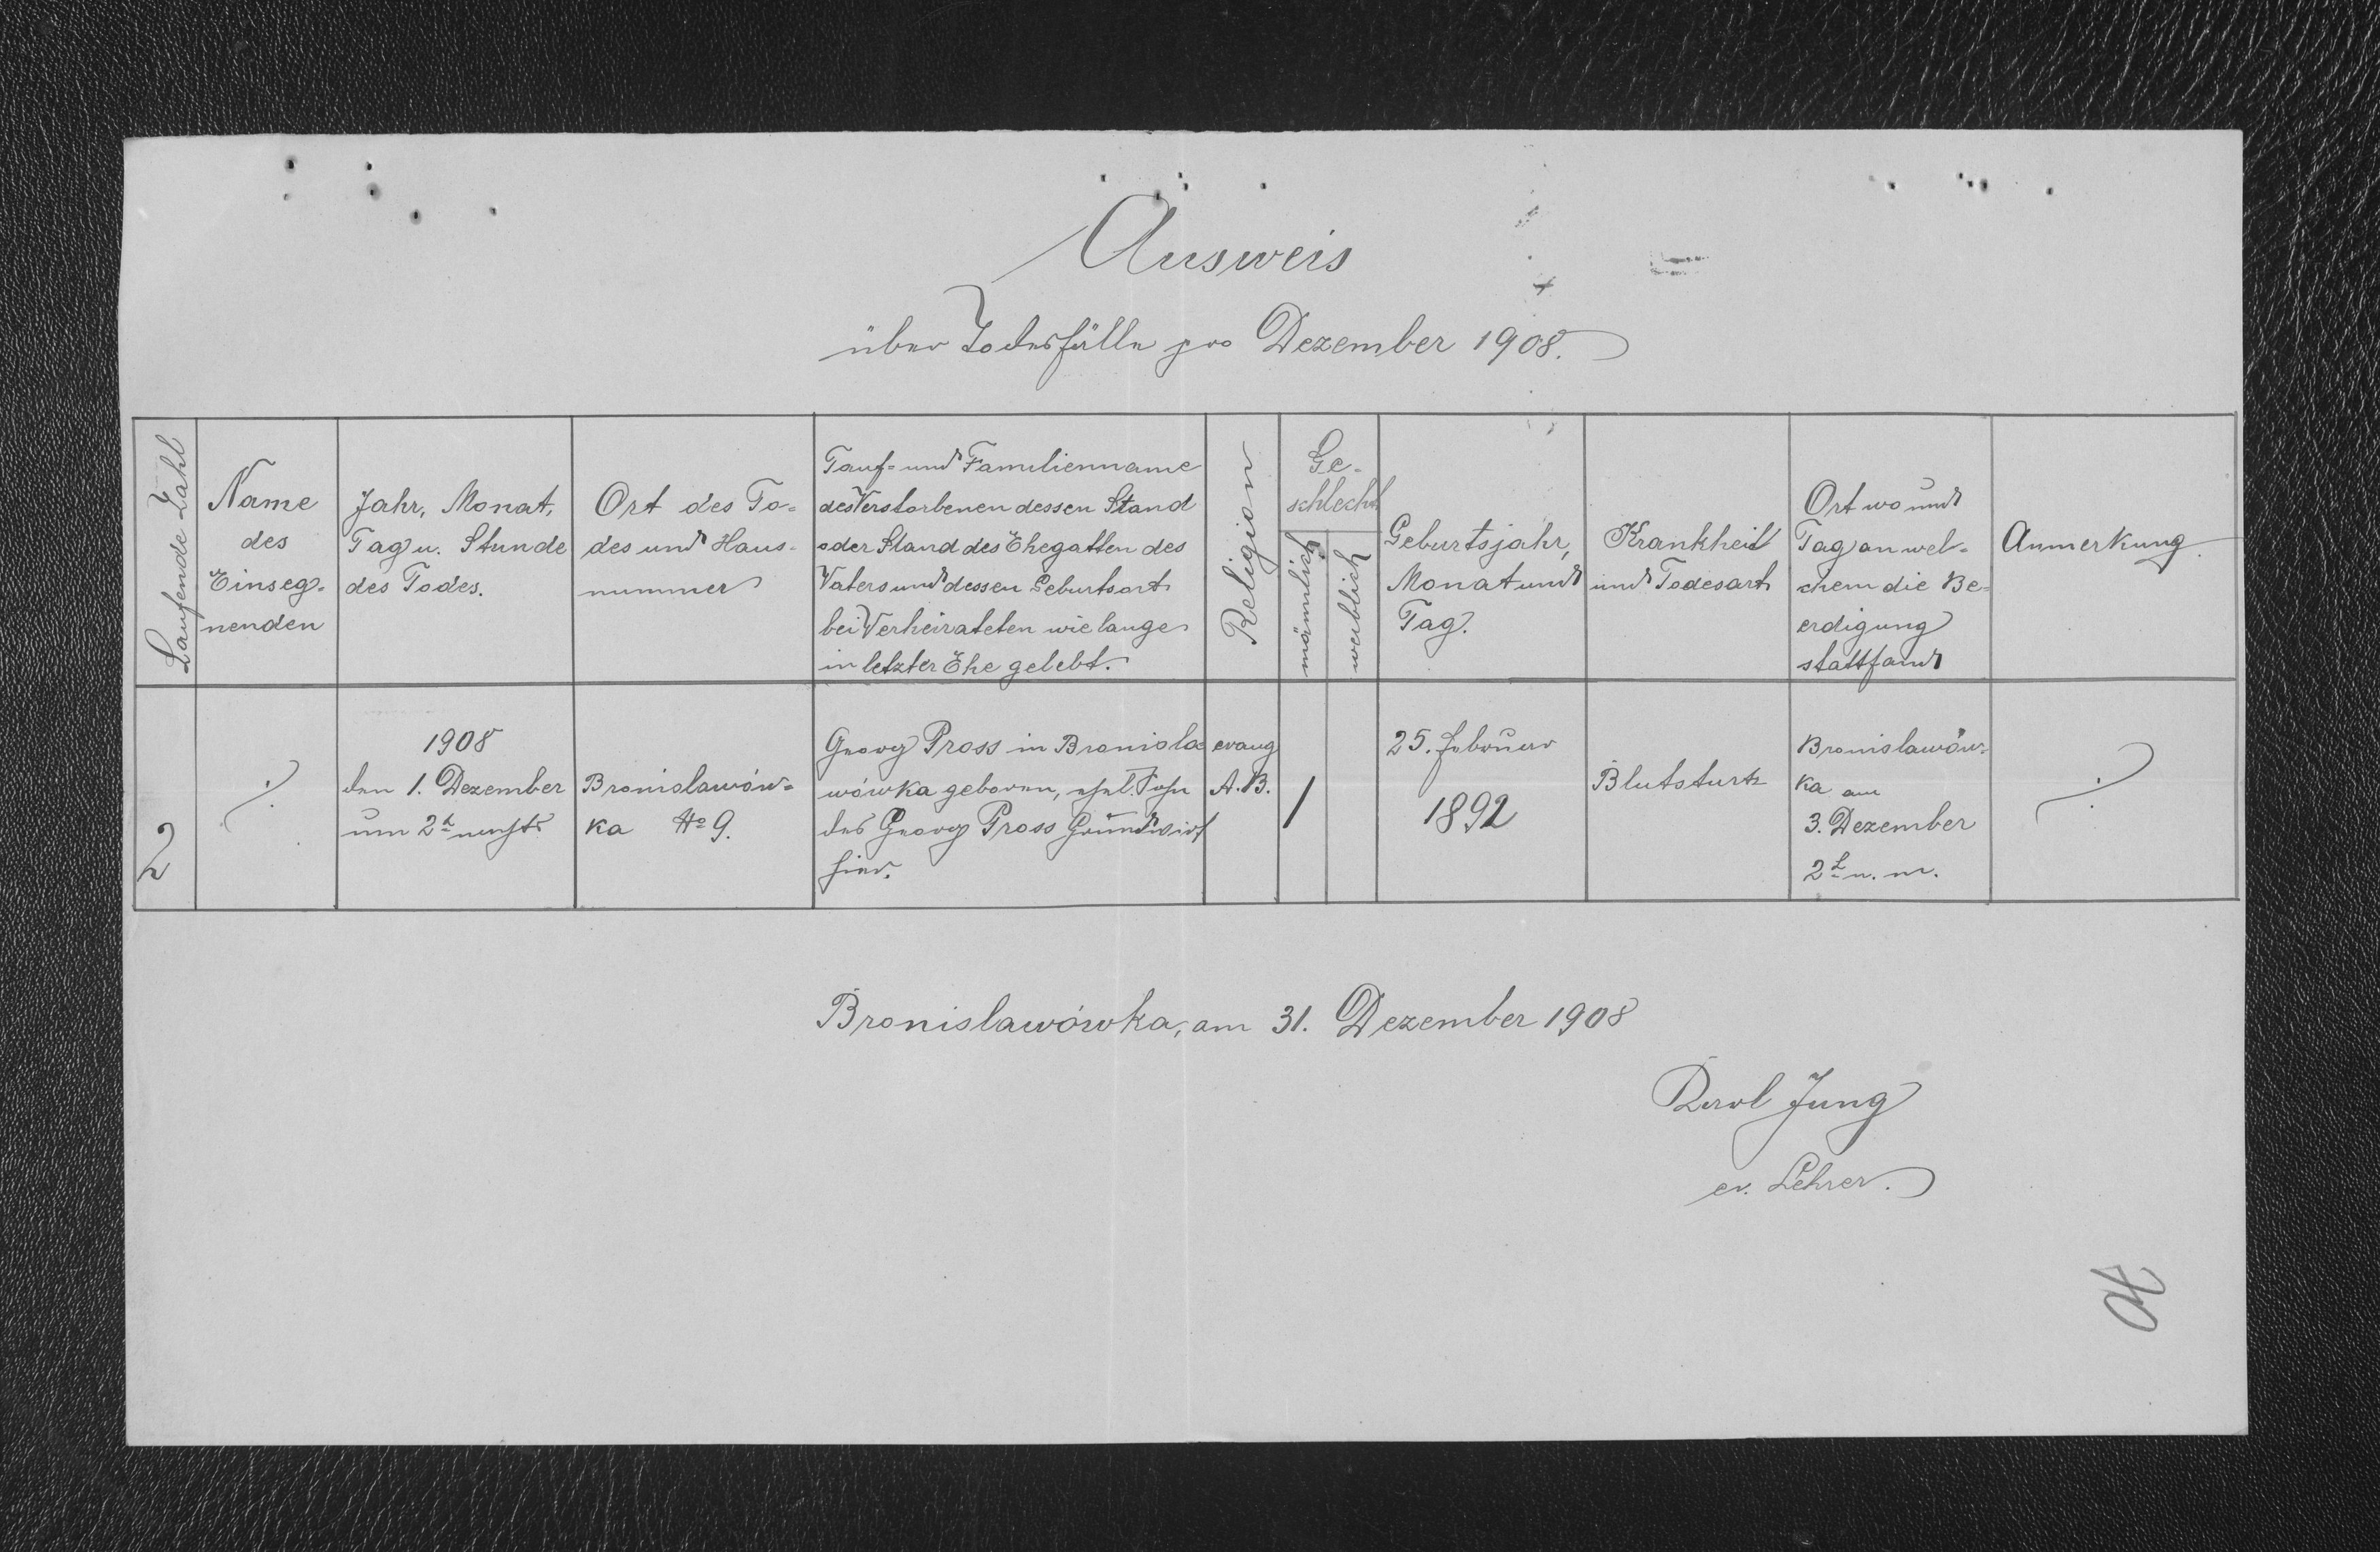 Ausweis
über Todesfälle pro Dezember 1908.
Laufende Zahl
Name
des
Einseg-
nenden
Jahr, Monat,
Tag u. Stunde
des Todes.
Ort des To-
des und Haus-
nummer
Tauf- und Familienname
des Verstorbenen dessen Stand
oder Stand des Ehegatten des
Vaters und dessen Geburtsort
bei Verheirateten wie lange
in letzter Ehe gelebt.
Religion
Ge-
schlecht
männlich
weiblich
Geburtsjahr,
Monat und
Tag.
Krankheit
und Todesart
Ort wo und
Tag an wel-
chem die Be-
erdigung
stattfand
Anmerkung.
2
./.
1908
den 1. Dezember
um 2 h nachts
Bronislawów-
ka No 9.
Georg Pross in Bronisla-
wówka geboren, ehel. Sohn
des Georg Pross Grundwirt
hier.
evang
A.B.
1
25. Februar
1892
Blutsturtz
Bronislawów-
ka am
3. Dezember
2 h n. m.
./.
Bronislawówka, am 31. Dezember 1908
Jung
ev. Lehrer.